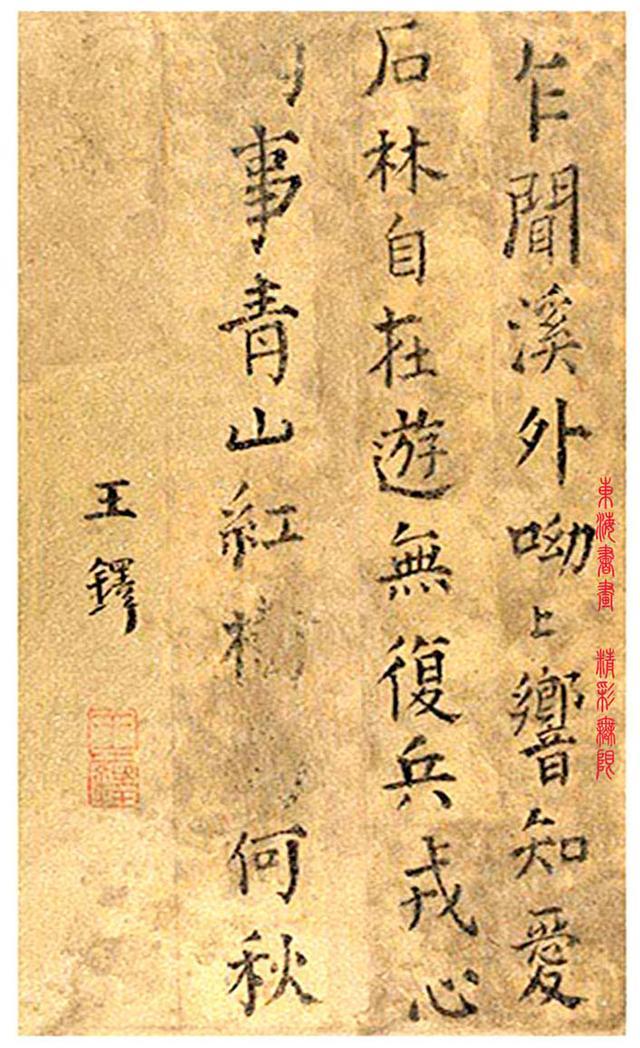 乍聞溪外呦〻響知愛
石林自在遊無復兵戎心
事青山紅何秋
王鐸
東海書畫 精彩無限